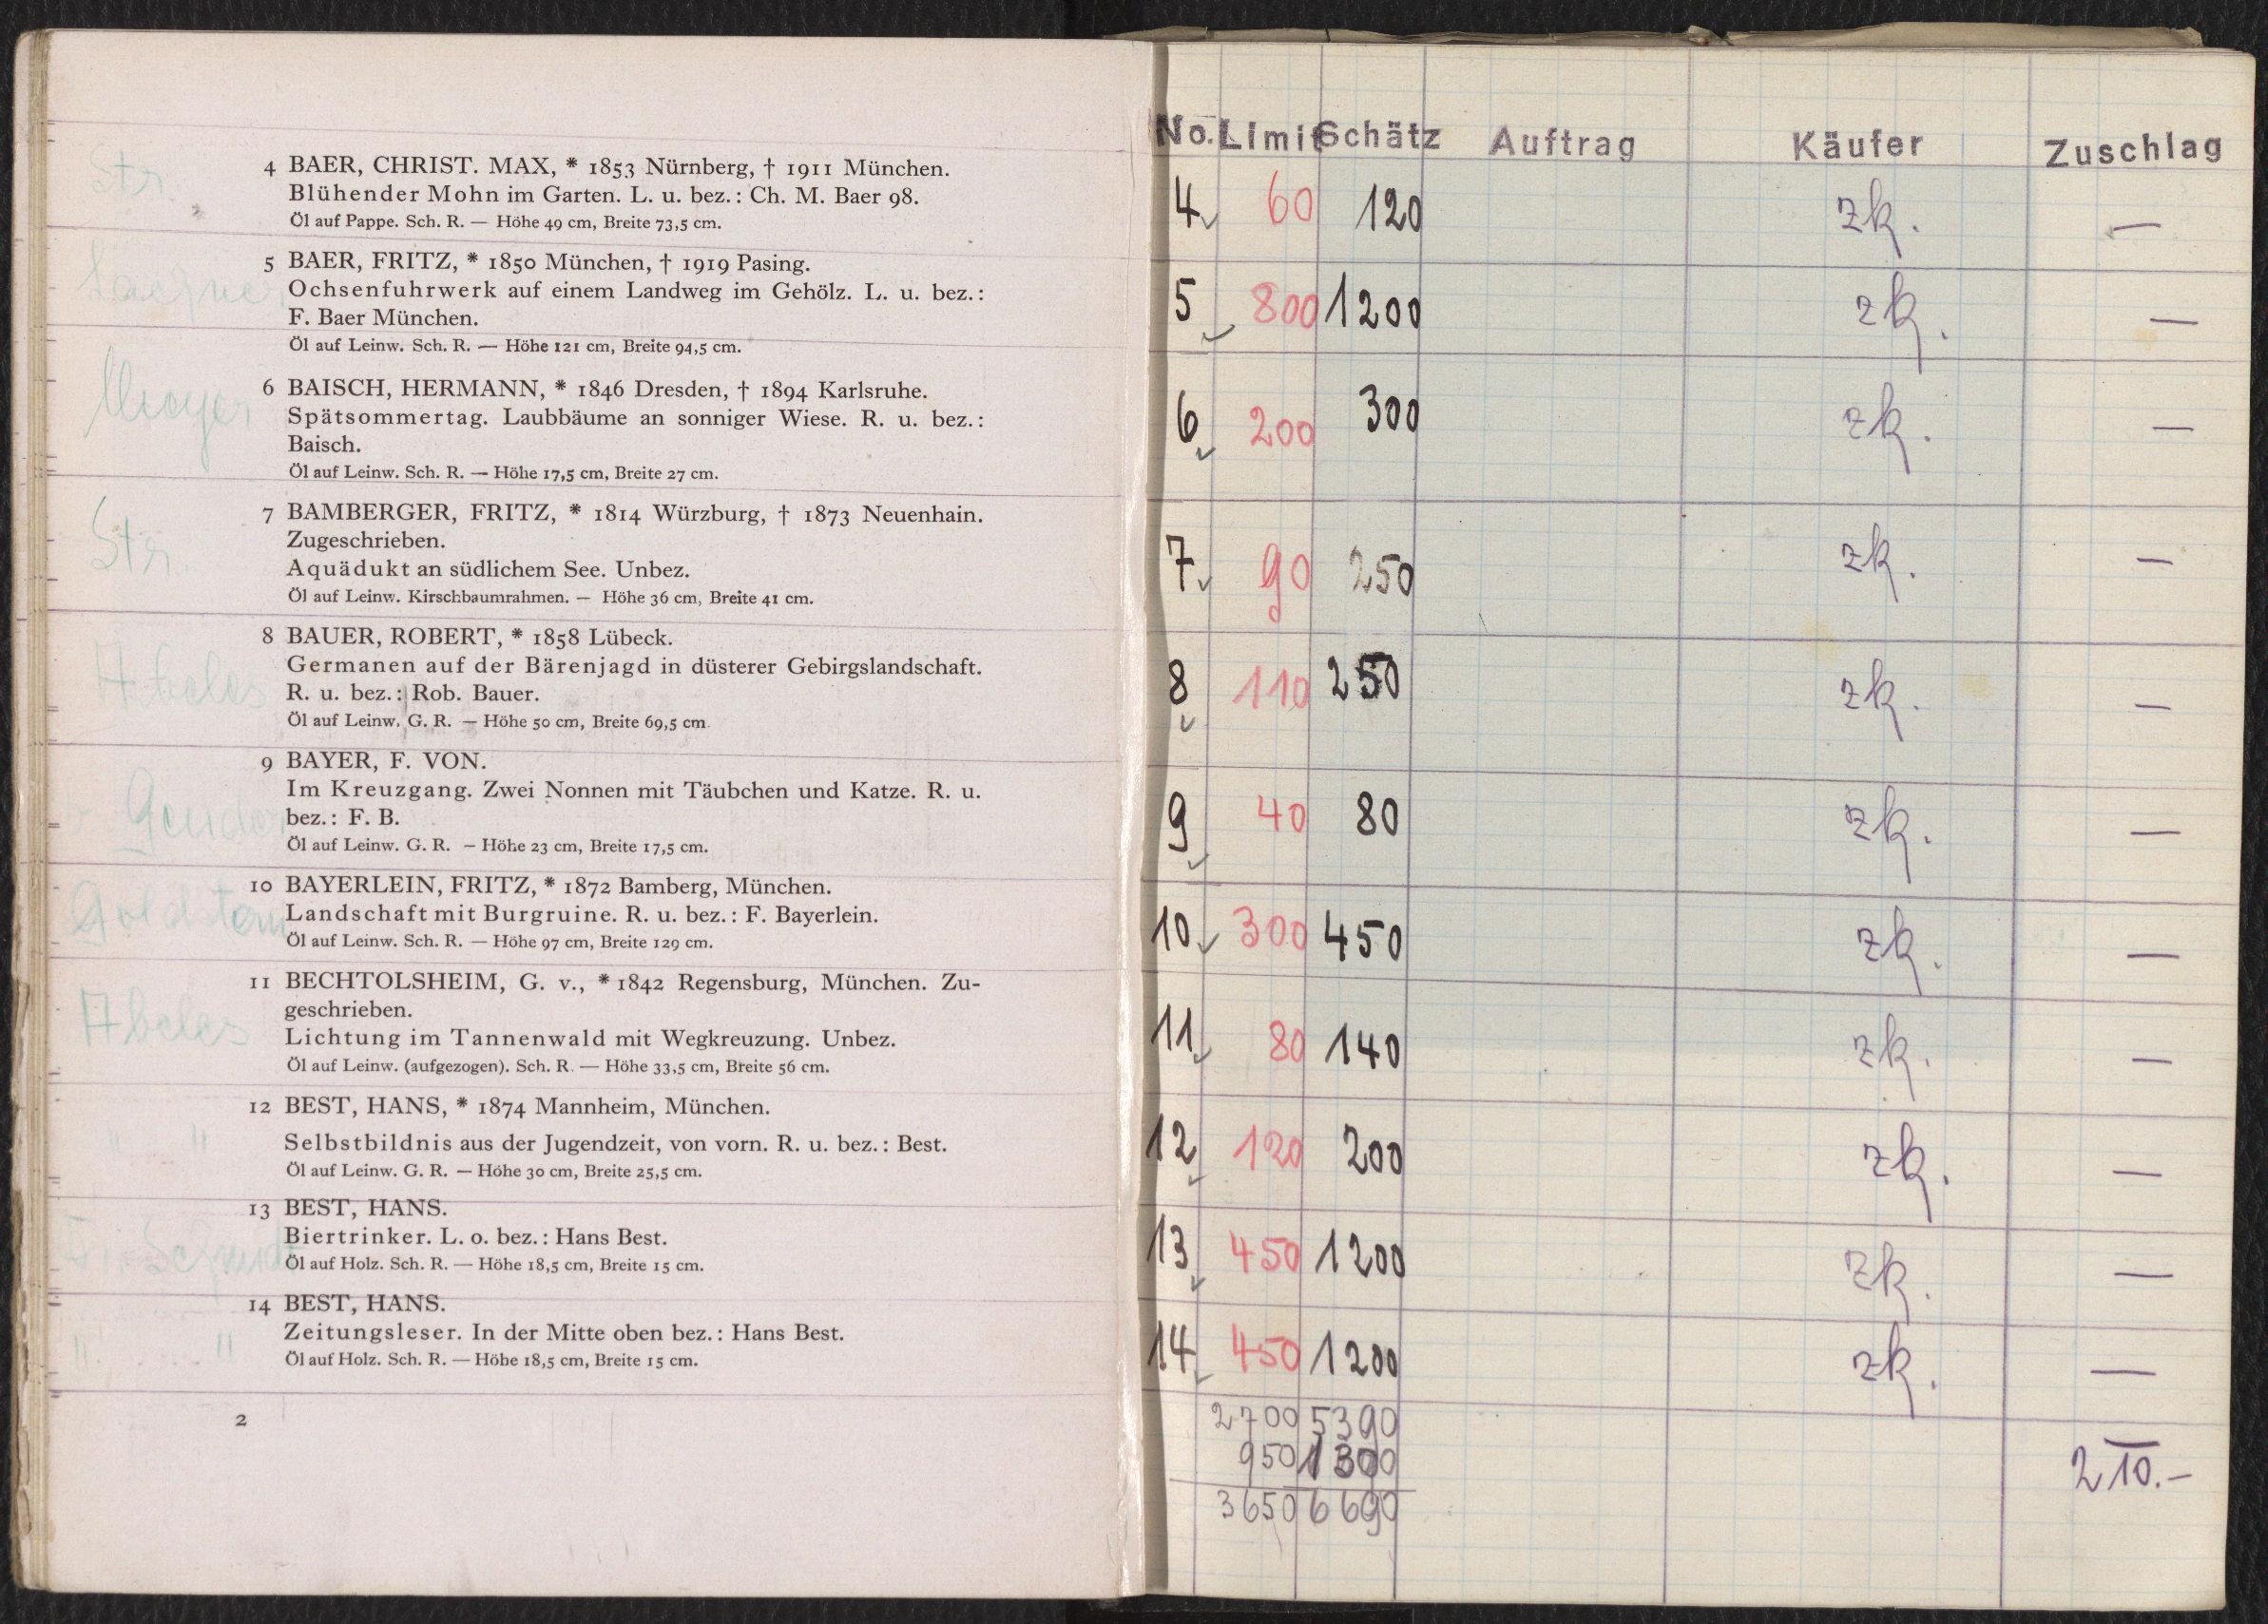 Str.
4 BAER, CHRIST. MAX, * 1853 Nürnberg, † 1911 München.
Blühender Mohn im Garten. L. u. bez.: Ch. M. Baer 98.
Öl auf Pappe. Sch. R. — Höhe 49 cm, Breite 73,5 cm.
5 BAER, FRITZ, * 1850 München, † 1919 Pasing.
Ochsenfuhrwerk auf einem Landweg im Gehölz. L. u. bez.:
F. Baer München.
Öl auf Leinw. Sch. R. — Höhe 121 cm, Breite 94,5 cm.
Meyer
6 BAISCH, HERMANN, * 1846 Dresden, † 1894 Karlsruhe.
Spätsommertag. Laubbäume an sonniger Wiese. R. u. bez.:
Baisch.
Öl auf Leinw. Sch. R. — Höhe 17,5 cm, Breite 27 cm.
Str.
7 BAMBERGER, FRITZ, * 1814 Würzburg, † 1873 Neuenhain.
Zugeschrieben.
Aquädukt an südlichem See. Unbez.
Öl auf Leinw. Kirschbaumrahmen. — Höhe 36 cm, Breite 41 cm.
Abeles
8 BAUER, ROBERT, * 1858 Lübeck.
Germanen auf der Bärenjagd in düsterer Gebirgslandschaft.
R. u. bez.: Rob. Bauer.
Öl auf Leinw. G. R. — Höhe 50 cm, Breite 69,5 cm.
9 BAYER, F. VON.
Im Kreuzgang. Zwei Nonnen mit Täubchen und Katze. R. u.
bez.: F. B.
Öl auf Leinw. G. R. — Höhe 23 cm, Breite 17,5 cm.
10 BAYERLEIN, FRITZ, * 1872 Bamberg, München.
Landschaft mit Burgruine. R. u. bez.: F. Bayerlein.
Öl auf Leinw. Sch. R. — Höhe 97 cm, Breite 129 cm.
Abeles
11 BECHTOLSHEIM, G. v., * 1842 Regensburg, München. Zu-
geschrieben.
Lichtung im Tannenwald mit Wegkreuzung. Unbez.
Öl auf Leinw. (aufgezogen). Sch. R. — Höhe 33,5 cm, Breite 56 cm.
" "
12 BEST, HANS, * 1874 Mannheim, München.
Selbstbildnis aus der Jugendzeit, von vorn. R. u. bez.: Best.
Öl auf Leinw. G. R. — Höhe 30 cm, Breite 25,5 cm.
Schmidt
13 BEST, HANS.
Biertrinker. L. o. bez.: Hans Best.
Öl auf Holz. Sch. R. — Höhe 18,5 cm, Breite 15 cm.
" "
14 BEST, HANS.
Zeitungsleser. In der Mitte oben bez.: Hans Best.
Öl auf Holz. Sch. R. — Höhe 18,5 cm, Breite 15 cm.
2
No. Limit Schätz Auftrag Käufer Zuschlag
4 60 120 zk. —
5 800 1200 zk. —
6 200 300 zk. —
7 90 250 zk. —
8 110 250 zk. —
9 40 80 zk. —
10 300 450 zk. —
11 80 140 zk. —
12 120 200 zk. —
13 450 1200 zk. —
14 450 1200 zk. —
2700 5390
950 1300
3650 6690
210.-